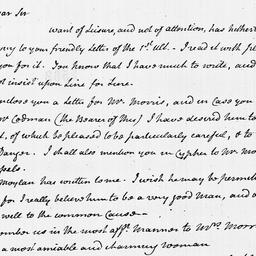 ear Sir
want of Leisure, and not of attention, has hithert
ory to your friendly Letter of the 1st ult. — I read it with ple
you for it. You know that I have much to write, and
t insist upon Line for Line.
nclose you a Letter for Mr. Morris, and in Case you
r Codman (the Bearer of this) I have desired him to
d, of which be pleased to be particularly careful, & to
Danger. I shall also mention you in Cypher to Mr. Mor
pels.
Moylan has written to me. I wish he may be persuade
for I really believe him to be a very good Man, and a
well to the common Cause —
member us in the most afft. Manner to Mrs. Morr
a most amiable and charming woman